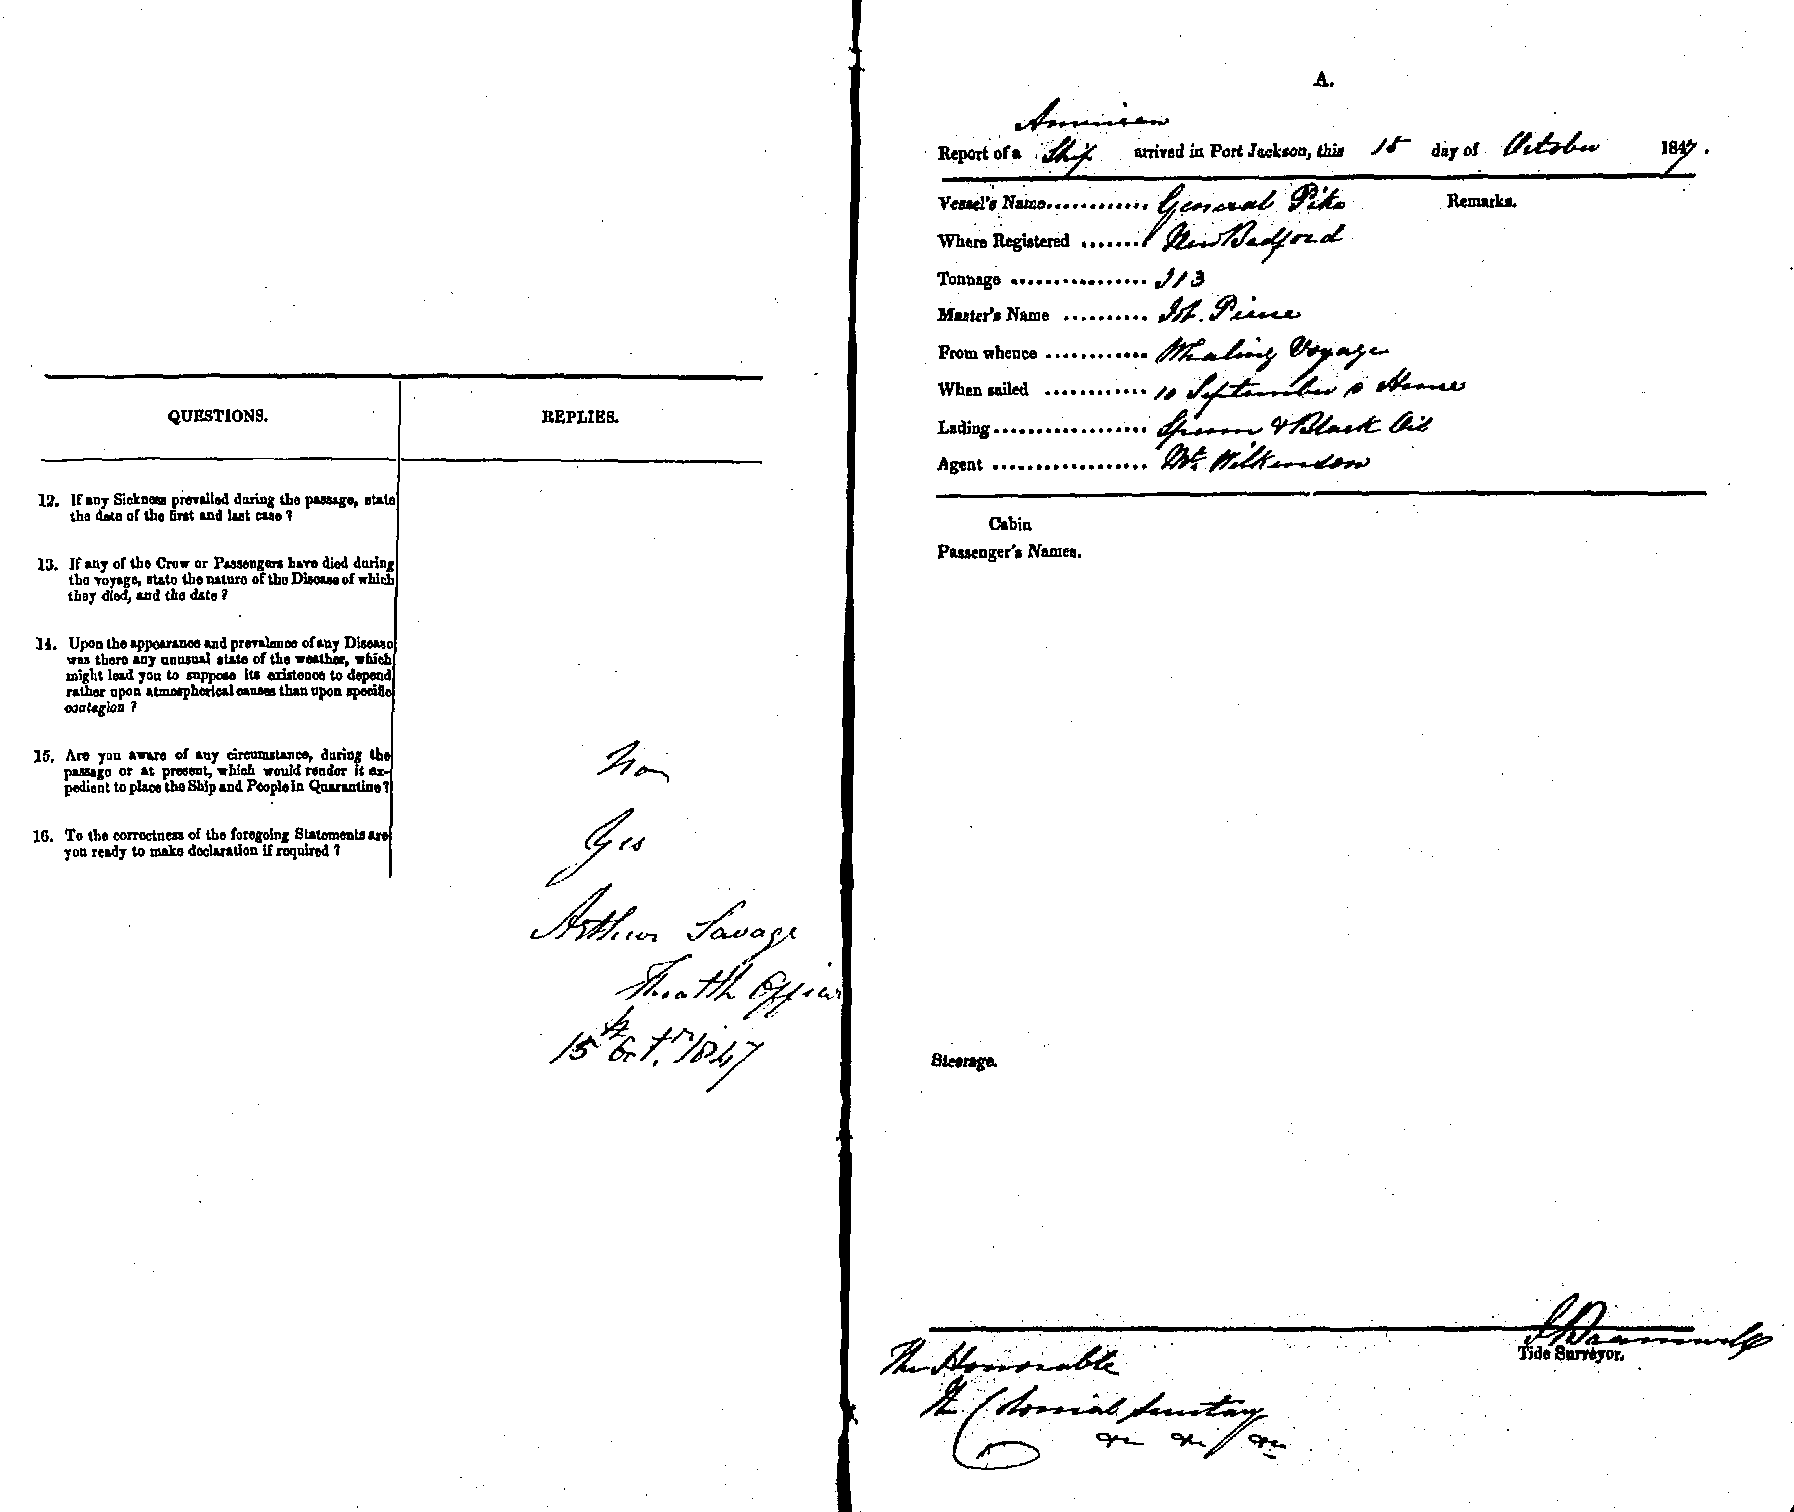 QUESTIONS.
REPLIES.
12. If any Sickness prevailed during the passage, state
the date of the first and last case ?
13. If any of the Crew or Passengers have died during
the voyage, state the nature of the Disease of which
they died, and the date ?
14. Upon the appearance and prevalence of any Disease
was there any unusual state of the weather, which
might lead you to suppose its existence to depend
rather upon atmospherical causes than upon specific
contagion ?
15. Are you aware of any circumstance, during the
passage or at present, which would render it ex-
pedient to place the Ship and People in Quarantine ?
16. To the correctness of the foregoing Statements are
you ready to make declaration if required ?
Yes
Arthur Savage
Health Officer
15th Octr. 1847
A.
American
Report of a Ship arrived in Port Jackson, this 15 day of October 1847.
Vessel's Name............ General Pike
Remarks.
Where Registered ....... New Bedford
Tonnage ................ 313
Master's Name .......... Pierce
From whence ............ Whaling Voyage
When sailed ............ 10 September Home
Lading.................. Sperm & Black Oil
Agent .................. Mr. Wilkinson
Cabin
Passenger's Names.
Steerage.
Tide Surveyor.
The Honorable
The Colonial Secretary
&c &c &c